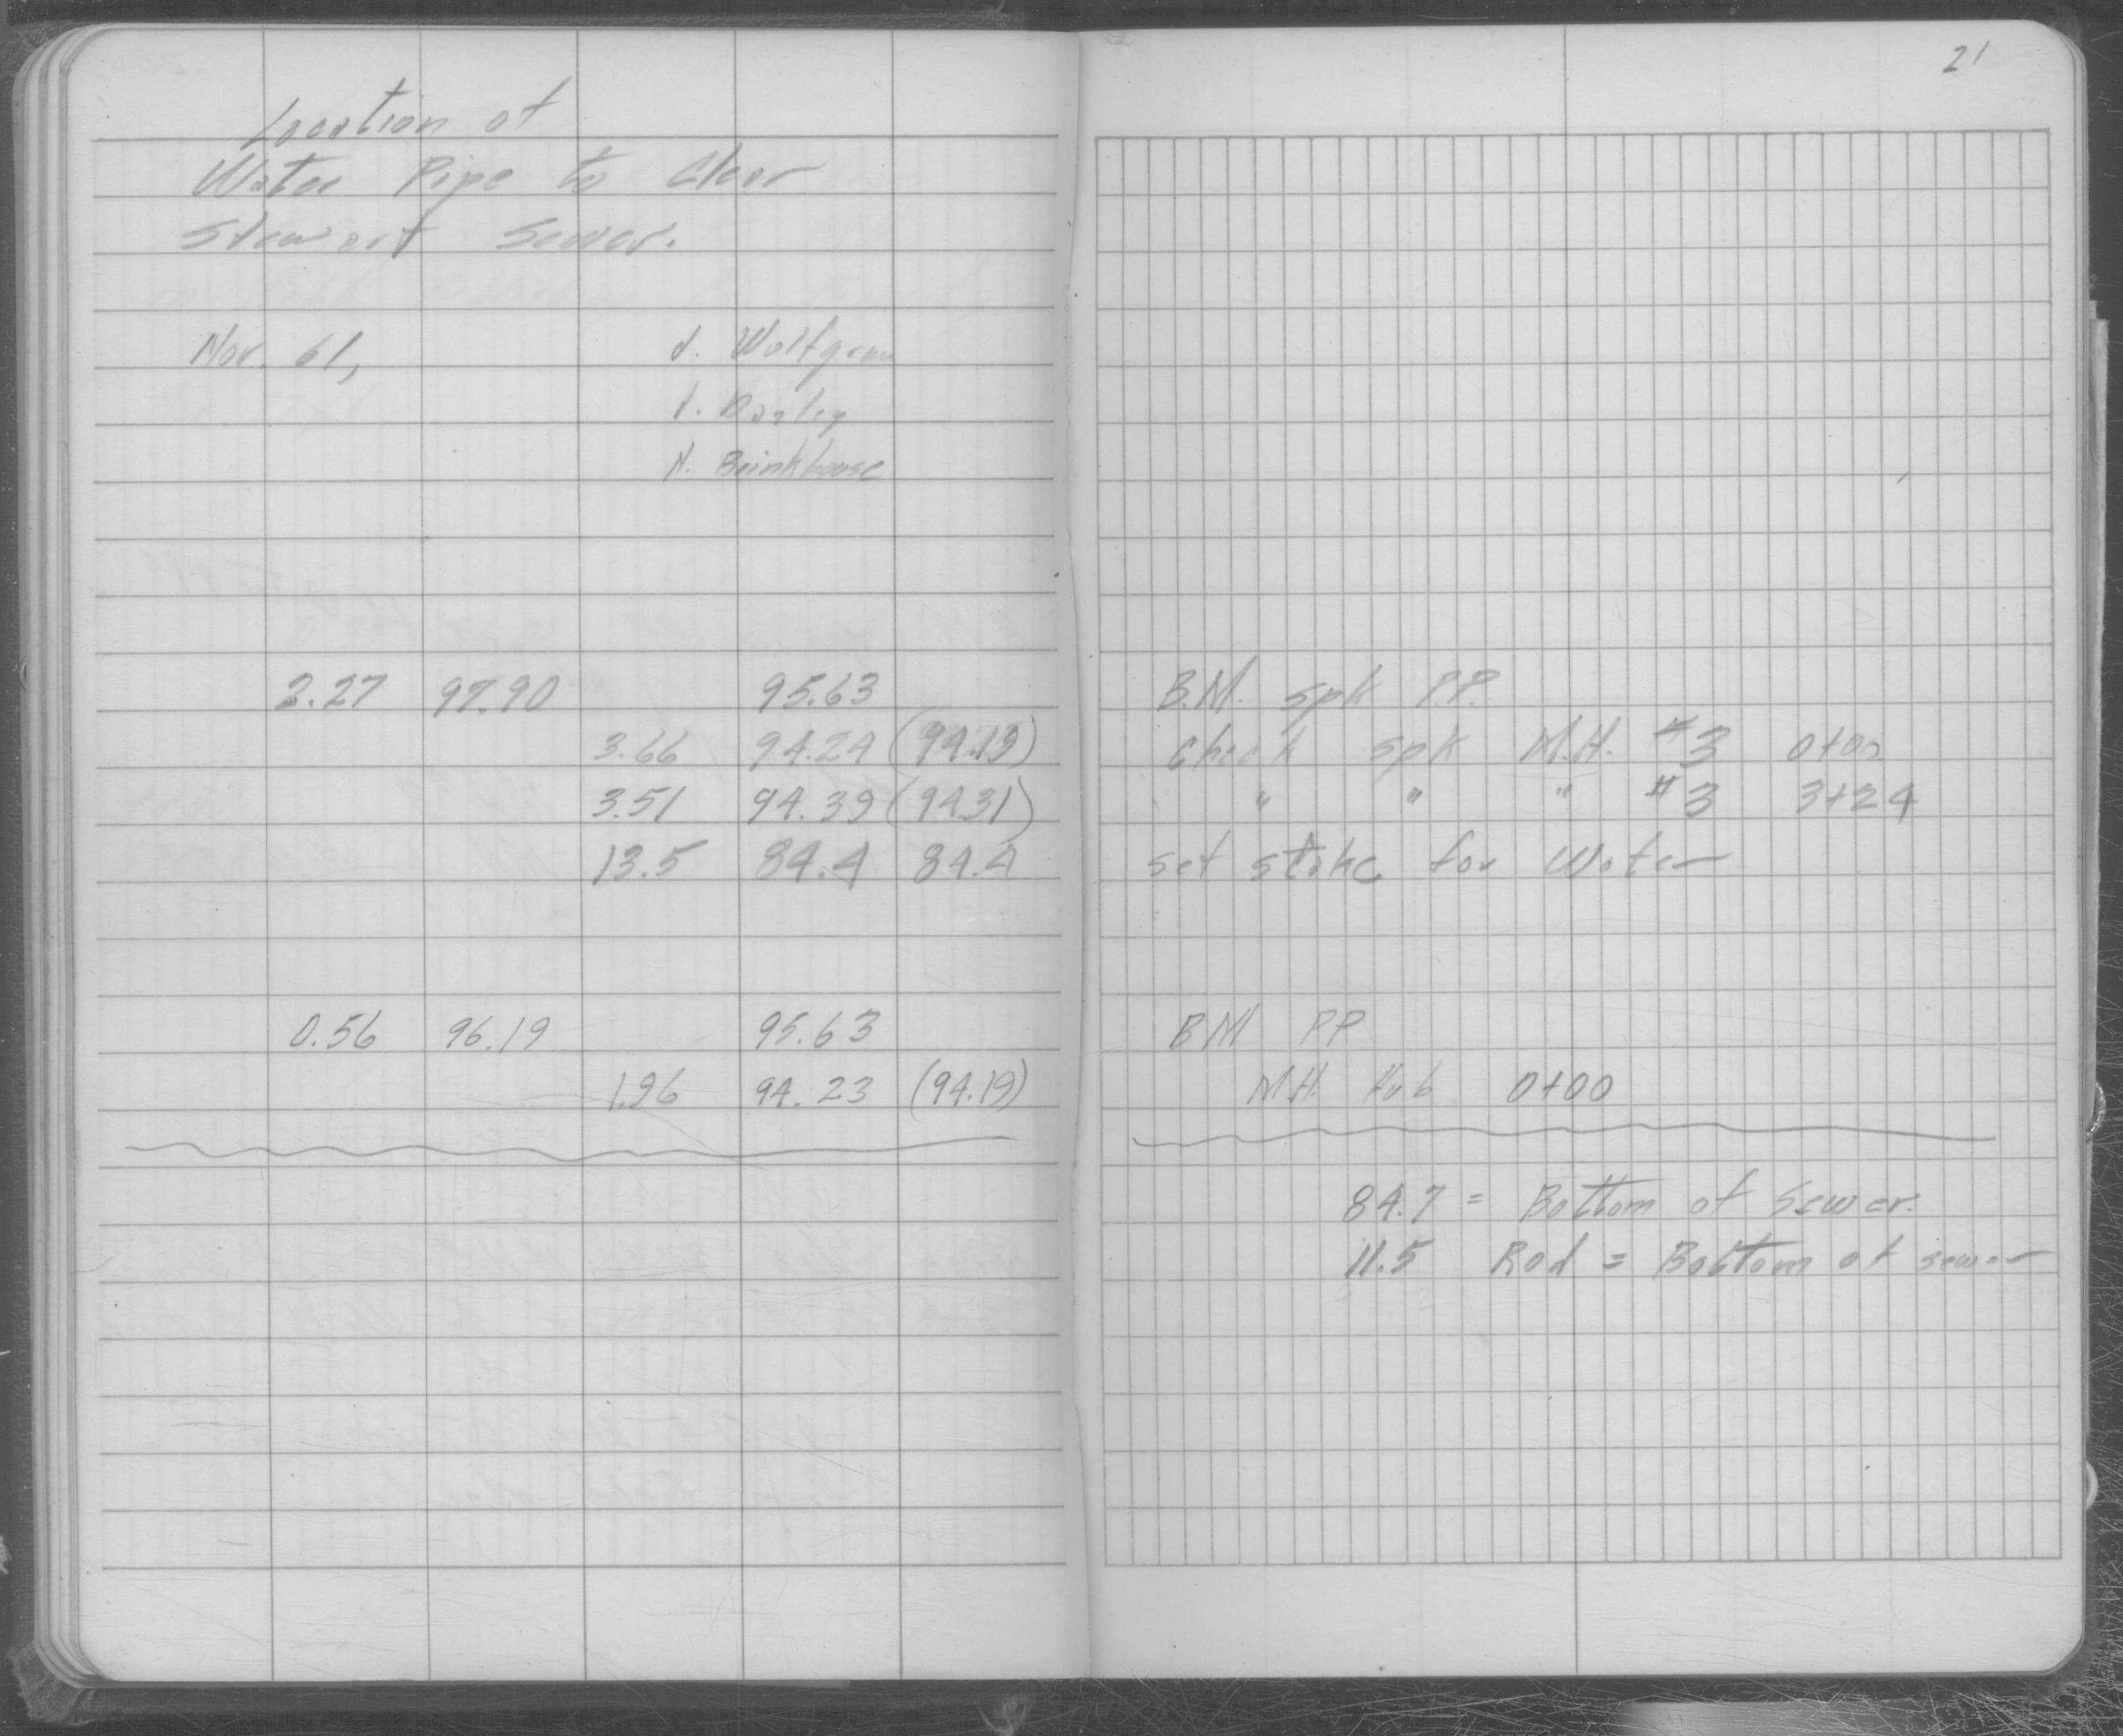 21
Location of
Water Pipe to Clear
Stewart Sewer.
Nov. 61, J. Wolfgram
J. Danley
N. Brinkhouse
2.27 97.90 95.63 B.M. spk P.P.
3.66 94.24 (94.19) Check spk M.H. #3 0+00
3.51 94.39 (94.31) " " " #3 3+24
13.5 84.4 84.4 set stake for Water
0.56 96.19 95.63 BM PP
1.96 94.23 (94.19) M.H. Hub 0+00
84.7 = Bottom of Sewer.
11.5 Rod = Bottom of sewer